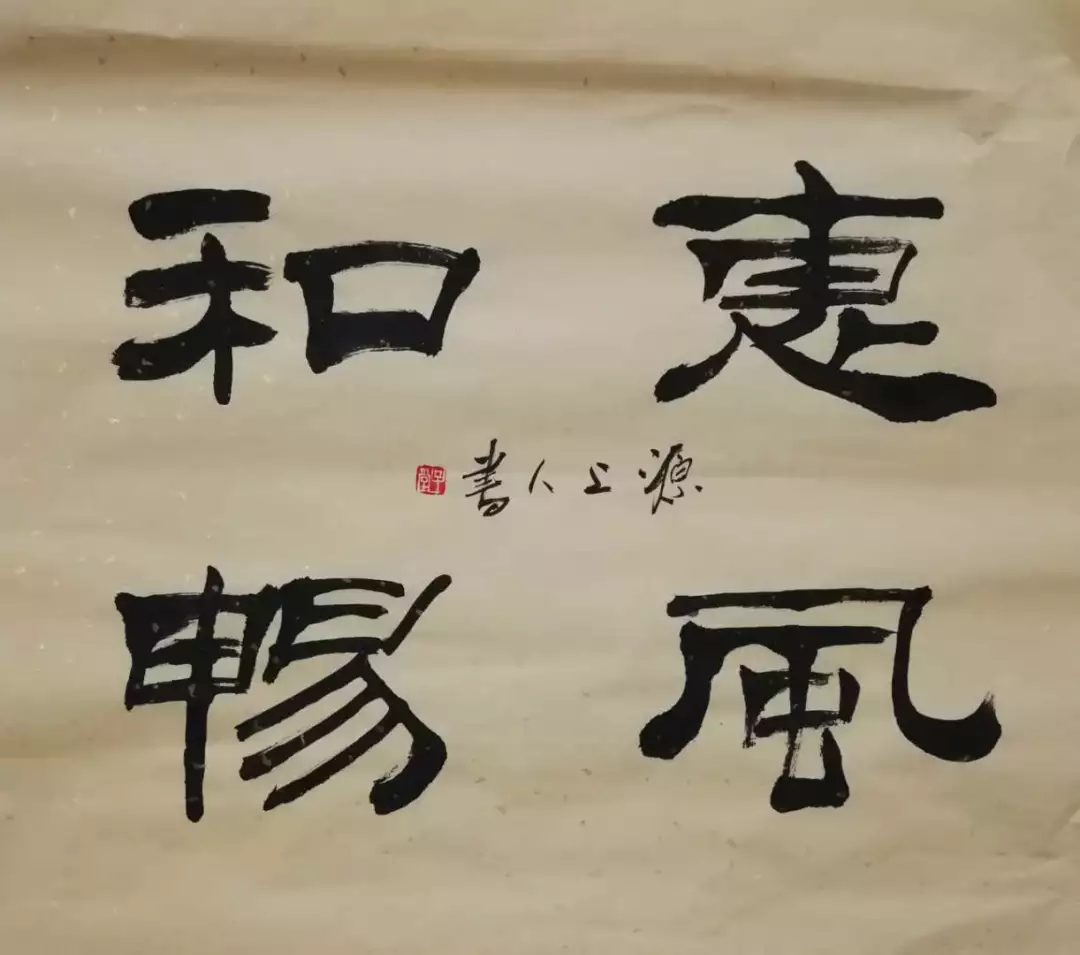 惠風
和暢
源上人書